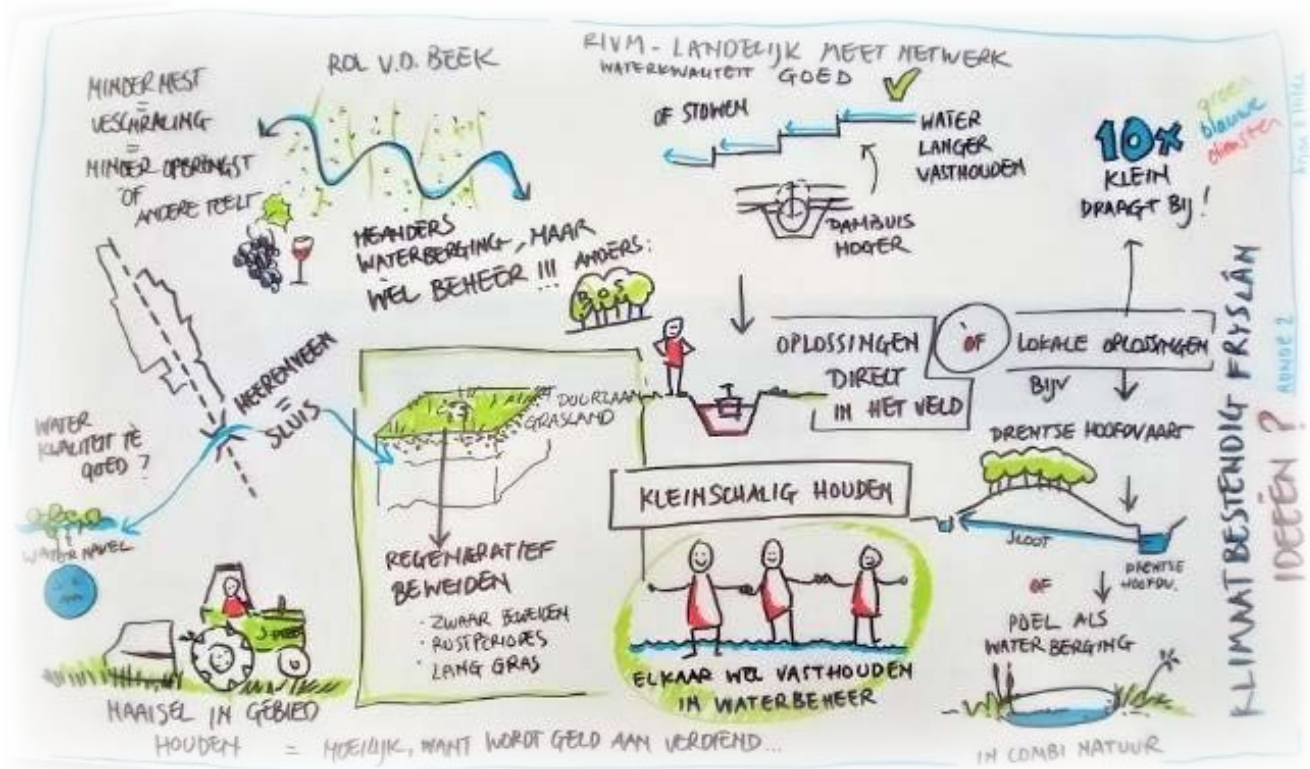 MINDER MEST
=
VESCHRALING
=
MINDER OPBRENGST
OF
ANDERE TEELT
ROL V.D. BEEK
MEANDERS
WATERBERGING, MAAR
WEL BEHEER !!!
ANDERS:
BOS
RIVM - LANDELIJK MEET NETWERK
WATERKWALITEIT GOED
OF STUWEN
WATER
LANGER
VASTHOUDEN
DAMBUIS
HOGER
10x
KLEIN
DRAAGT BIJ!
groen
blauwe
diensten
HEERENVEEN
=
SLUIS
WATER
KWALITEIT TE
GOED?
WATERNAVEL
DUURZAAM
GRASLAND
REGENERATIEF
BEWEIDEN
· ZWAAR BEWEIDEN
· RUSTPERIODES
· LANG GRAS
OPLOSSINGEN
DIRECT
IN HET VELD
OF
LOKALE OPLOSSINGEN
BIJV
DRENTSE HOOFDVAART
SLOOT
DRENTSE
HOOFDV.
OF
POEL ALS
WATERBERGING
IN COMBI NATUUR
KLEINSCHALIG HOUDEN
ELKAAR WEL VASTHOUDEN
IN WATERBEHEER
MAAISEL IN GEBIED
HOUDEN = MOEILIJK, WANT WORDT GELD AAN VERDIEND...
KLIMAATBESTENDIG FRYSLÂN
IDEEËN?
RONDE 2